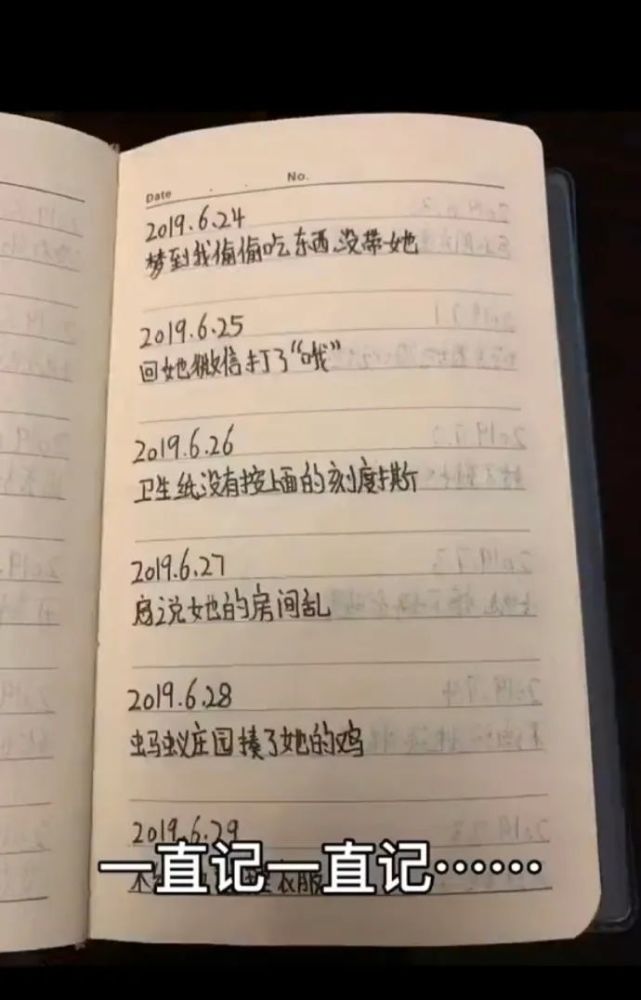 Date No.
2019.6.24
梦到我偷偷吃东西没带她
2019.6.25
回她微信打了“哦”
2019.6.26
卫生纸没有按上面的刻度撕
2019.6.27
说她的房间乱
2019.6.28
蚂蚁庄园揍了她的鸡
2019.6.29
衣服
一直记一直记……